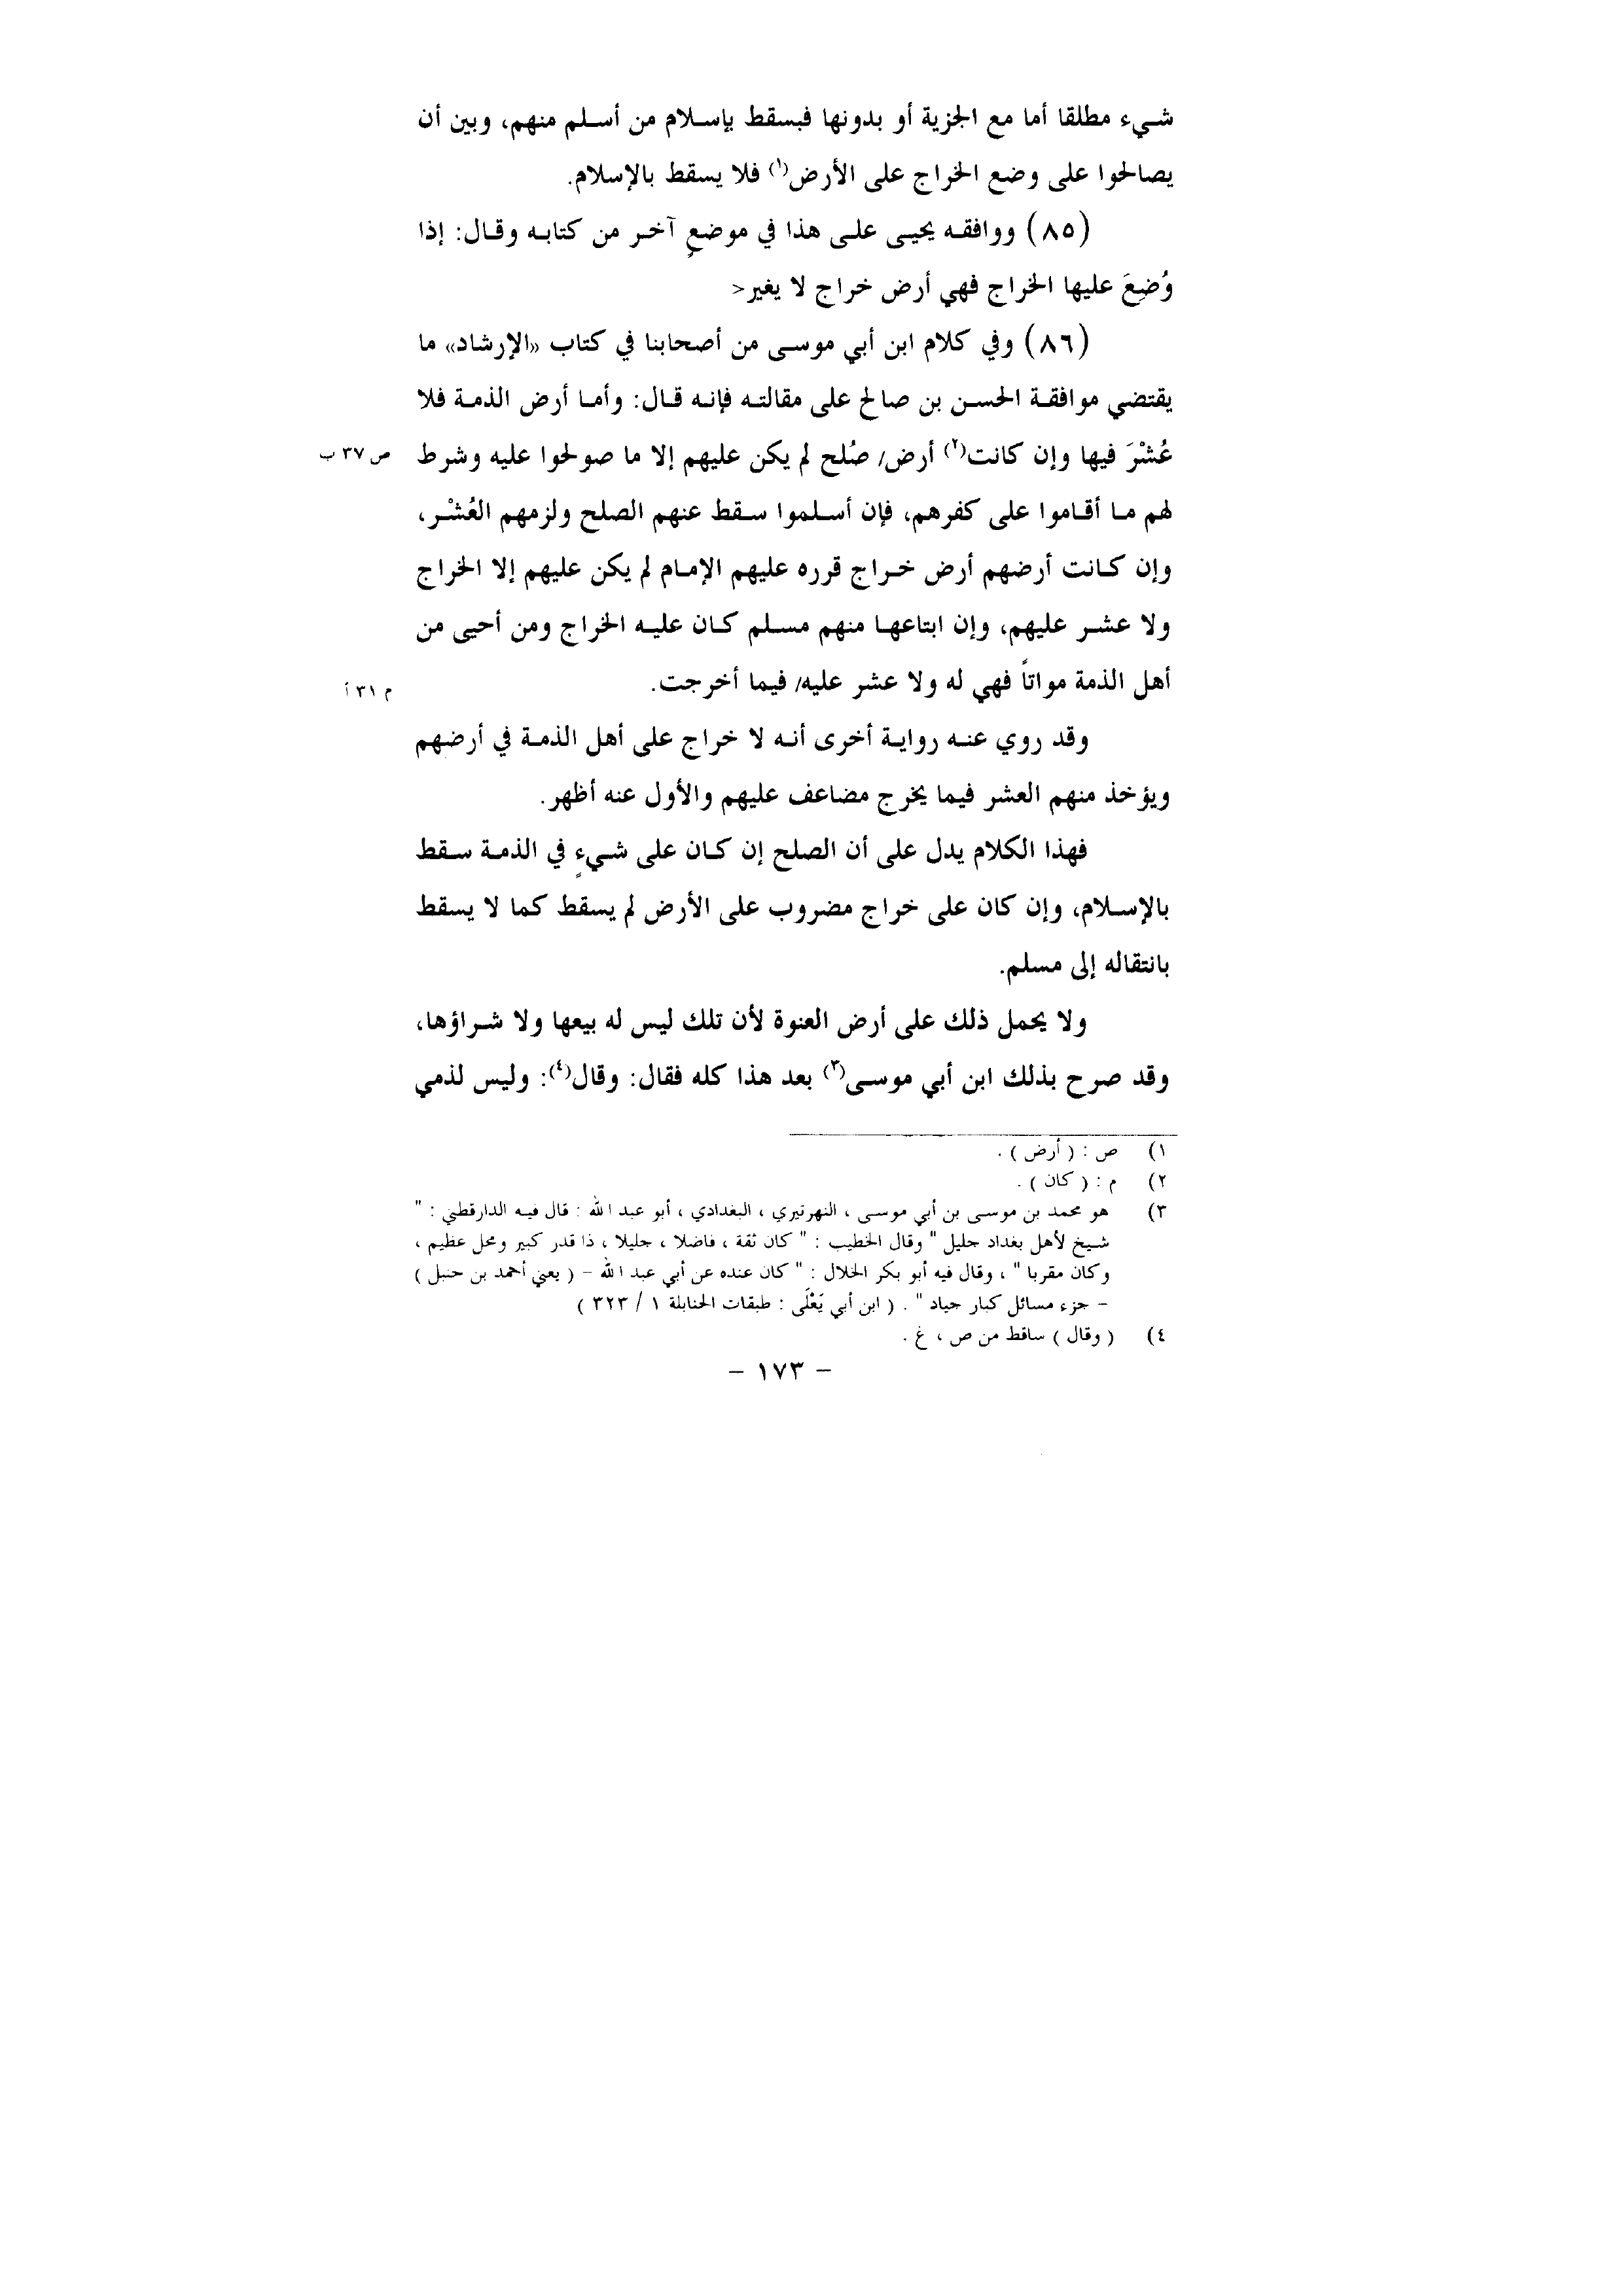 شيء مطلقا أما مع الجزية أو بدونها فبسقط بإسلام من أسلم منهم، وبين أن
يصالحوا على وضع الخراج على الأرض(١) فلا يسقط بالإسلام.
(٨٥) ووافقه يحيى على هذا في موضعٍ آخر من كتابه وقال: إذا
وُضِعَ عليها الخراج فهي أرض خراج لا يغير<
(٨٦) وفي كلام ابن أبي موسى من أصحابنا في كتاب «الإرشاد» ما
يقتضي موافقة الحسن بن صالح على مقالته فإنه قال: وأما أرض الذمة فلا
عُشْرَ فيها وإن كانت(٢) أرض/ صُلح لم يكن عليهم إلا ما صولحوا عليه وشرط
ص ٣٧ ب
لهم ما أقاموا على كفرهم، فإن أسلموا سقط عنهم الصلح ولزمهم العُشْر،
وإن كانت أرضهم أرض خراج قرره عليهم الإمام لم يكن عليهم إلا الخراج
ولا عشر عليهم، وإن ابتاعها منهم مسلم كان عليه الخراج ومن أحيى من
أهل الذمة مواتاً فهي له ولا عشر عليه/ فيما أخرجت.
م ٣١ أ
وقد روي عنه رواية أخرى أنه لا خراج على أهل الذمة في أرضهم
ويؤخذ منهم العشر فيما يخرج مضاعف عليهم والأول عنه أظهر.
فهذا الكلام يدل على أن الصلح إن كان على شيءٍ في الذمة سقط
بالإسلام، وإن كان على خراج مضروب على الأرض لم يسقط كما لا يسقط
بانتقاله إلى مسلم.
ولا يحمل ذلك على أرض العنوة لأن تلك ليس له بيعها ولا شراؤها،
وقد صرح بذلك ابن أبي موسى(٣) بعد هذا كله فقال: وقال(٤): وليس لذمي
١) ص : ( أرض ) .
٢) م : ( كان ) .
٣) هو محمد بن موسى بن أبي موسى ، النهرتيري ، البغدادي ، أبو عبد الله : قال فيه الدارقطني : "
شيخ لأهل بغداد جليل " وقال الخطيب : " كان ثقة ، فاضلا ، جليلا ، ذا قدر كبير ومحل عظيم ،
وكان مقربا " ، وقال فيه أبو بكر الخلال : " كان عنده عن أبي عبد الله – ( يعني أحمد بن حنبل )
– جزء مسائل كبار جياد " . ( ابن أبي يَعْلَى : طبقات الحنابلة ١ / ٣٢٣ )
٤) ( وقال ) ساقط من ص ، غ .
– ١٧٣ –